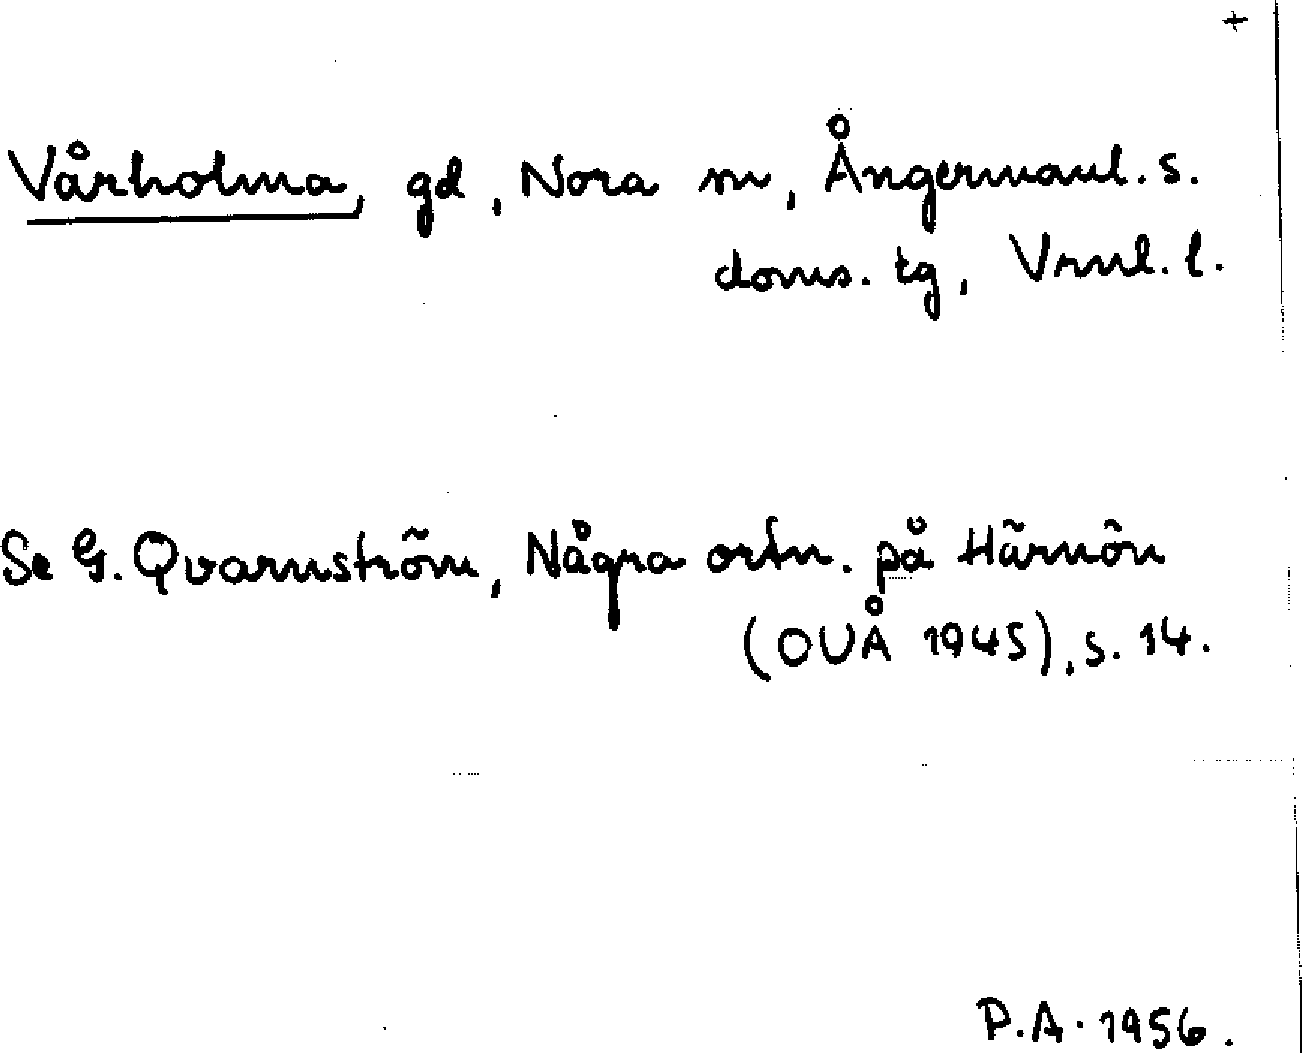 +
Vårholma, gd, Nora sn, Ångermanl. s.
doms. tg, Vrnl. l.
Se G. Qvarnström, Några ortn. på Härnön
(OUÅ 1945), s. 14.
P.A. 1956.